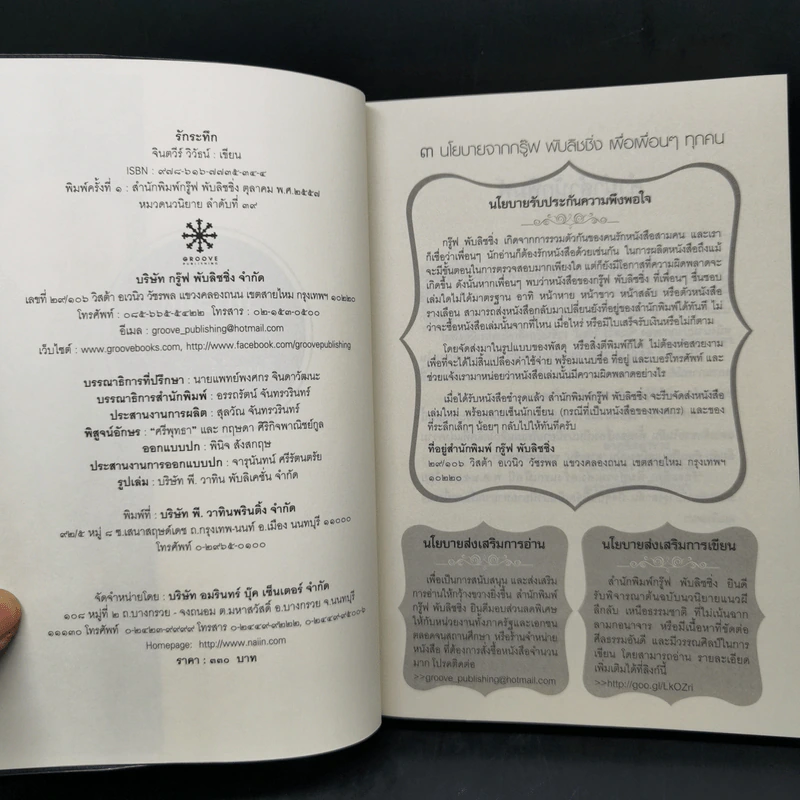 รักระทึก
จินตวีร์ วิวัธน์ : เขียน
ISBN : ๙๗๘-๖๑๖-๗๗๓๕-๓๔-๔
พิมพ์ครั้งที่ ๑ : สำนักพิมพ์กรู๊ฟ พับลิชชิ่ง ตุลาคม พ.ศ.๒๕๕๗
หมวดนวนิยาย ลำดับที่ ๓๙
GROOVE
PUBLISHING
บริษัท กรู๊ฟ พับลิชชิ่ง จำกัด
เลขที่ ๒๙/๑๐๖ วิสต้า อเวนิว วัชรพล แขวงคลองถนน เขตสายไหม กรุงเทพฯ ๑๐๒๒๐
โทรศัพท์ : ๐๘๕-๖๖๕-๕๔๒๔ โทรสาร : ๐๒-๑๕๓-๐๕๐๐
อีเมล : groove_publishing@hotmail.com
เว็บไซต์ : www.groovebooks.com, http://www.facebook.com/groovepublishing
บรรณาธิการที่ปรึกษา : นายแพทย์พงศกร จินดาวัฒนะ
บรรณาธิการสำนักพิมพ์ : อรรถรัตน์ จันทรวรินทร์
ประสานงานการผลิต : สุลวัณ จันทรวรินทร์
พิสูจน์อักษร : "ศรีพุทธา" และ กฤษดา ศิริกิจพาณิชย์กูล
ออกแบบปก : พินิจ สังสกฤษ
ประสานงานการออกแบบปก : จารุนันทน์ ศรีรัตนตรัย
รูปเล่ม : บริษัท พี. วาทิน พับลิเคชั่น จำกัด
พิมพ์ที่ : บริษัท พี. วาทินพรินติ้ง จำกัด
๙๒/๕ หมู่ ๘ ซ.เสนาสฤษด์เดช ถ.กรุงเทพ-นนท์ อ.เมือง นนทบุรี ๑๑๐๐๐
โทรศัพท์ ๐-๒๙๖๕-๐๑๐๐
จัดจำหน่ายโดย : บริษัท อมรินทร์ บุ๊ค เซ็นเตอร์ จำกัด
๑๐๘ หมู่ที่ ๒ ถ.บางกรวย - จงถนอม ต.มหาสวัสดิ์ อ.บางกรวย จ.นนทบุรี
๑๑๑๓๐ โทรศัพท์ ๐-๒๔๒๓-๙๙๙๙ โทรสาร ๐-๒๔๔๙-๙๒๒๒, ๐-๒๔๔๙-๙๕๐๐๖
Homepage: http://www.naiin.com
ราคา : ๓๓๐ บาท
๓ นโยบายจากกรู๊ฟ พับลิชชิ่ง เพื่อเพื่อนๆ ทุกคน
นโยบายรับประกันความพึงพอใจ
กรู๊ฟ พับลิชชิ่ง เกิดจากการรวมตัวกันของคนรักหนังสือสามคน และเรา
ก็เชื่อว่าเพื่อนๆ นักอ่านก็ต้องรักหนังสือด้วยเช่นกัน ในการผลิตหนังสือถึงแม้
จะมีขั้นตอนในการตรวจสอบมากเพียงใด แต่ก็ยังมีโอกาสที่ความผิดพลาดจะ
เกิดขึ้น ดังนั้นหากเพื่อนๆ พบว่าหนังสือของกรู๊ฟ พับลิชชิ่ง ที่เพื่อนๆ ชื่นชอบ
เล่มใดไม่ได้มาตรฐาน อาทิ หน้าหาย หน้าขาว หน้าสลับ หรือตัวหนังสือ
รางเลือน สามารถส่งหนังสือกลับมาเปลี่ยนยังที่อยู่ของสำนักพิมพ์ได้ทันที ไม่
ว่าจะซื้อหนังสือเล่มนั้นจากที่ไหน เมื่อไหร่ หรือมีใบเสร็จรับเงินหรือไม่ก็ตาม
โดยจัดส่งมาในรูปแบบของพัสดุ หรือสิ่งตีพิมพ์ก็ได้ ไม่ต้องห่อสวยงาม
เพื่อที่จะได้ไม่สิ้นเปลืองค่าใช้จ่าย พร้อมแนบชื่อ ที่อยู่ และเบอร์โทรศัพท์ และ
ช่วยแจ้งเรามาหน่อยว่าหนังสือเล่มนั้นมีความผิดพลาดอย่างไร
เมื่อได้รับหนังสือชำรุดแล้ว สำนักพิมพ์กรู๊ฟ พับลิชชิ่ง จะรีบจัดส่งหนังสือ
เล่มใหม่ พร้อมลายเซ็นนักเขียน (กรณีที่เป็นหนังสือของพงศกร) และของ
ที่ระลึกเล็กๆ น้อยๆ กลับไปให้ทันทีครับ
ที่อยู่สำนักพิมพ์ กรู๊ฟ พับลิชชิ่ง
๒๙/๑๐๖ วิสต้า อเวนิว วัชรพล แขวงคลองถนน เขตสายไหม กรุงเทพฯ
๑๐๒๒๐
นโยบายส่งเสริมการอ่าน
เพื่อเป็นการสนับสนุน และส่งเสริม
การอ่านให้กว้างขวางยิ่งขึ้น สำนักพิมพ์
กรู๊ฟ พับลิชชิ่ง ยินดีมอบส่วนลดพิเศษ
ให้กับหน่วยงานทั้งภาครัฐและเอกชน
ตลอดจนสถานศึกษา หรือร้านจำหน่าย
หนังสือ ที่ต้องการสั่งซื้อหนังสือจำนวน
มาก โปรดติดต่อ
>>groove_publishing@hotmail.com
นโยบายส่งเสริมการเขียน
สำนักพิมพ์กรู๊ฟ พับลิชชิ่ง ยินดี
รับพิจารณาต้นฉบับนวนิยายแนวผี
ลึกลับ เหนือธรรมชาติ ที่ไม่เน้นฉาก
ลามกอนาจาร หรือมีเนื้อหาที่ขัดต่อ
ศีลธรรมอันดี และมีวรรณศิลป์ในการ
เขียน โดยสามารถอ่าน รายละเอียด
เพิ่มเติมได้ที่ลิงก์นี้
>>http://goo.gl/LkOZri